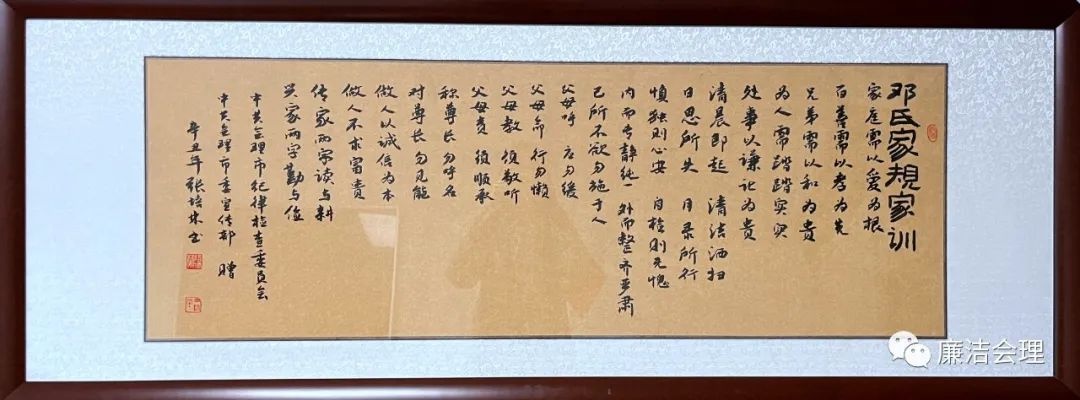 邓氏家规家训
家庭需以爱为根
百善需以孝为先
兄弟需以和为贵
为人需踏踏实实
处事以谦让为贵
清晨即起 清洁洒扫
日思所失 月录所行
慎独则心安 自检则无愧
内而专静纯一 外而整齐严肃
己所不欲勿施于人
父母呼 应勿缓
父母命 行勿懒
父母教 须敬听
父母责 须顺承
称尊长 勿呼名
对尊长 勿见能
做人以诚信为本
做人不求富贵
传家两字读与耕
兴家两字勤与俭
中共会理市纪律检查委员会
中共会理市委宣传部 赠
辛丑年 张培 书
廉洁会理